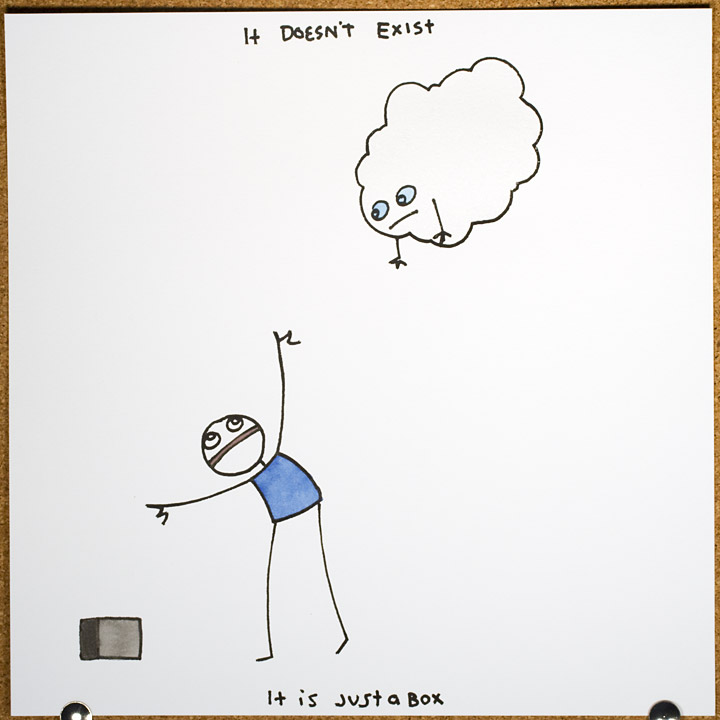 It DOESN'T Exist
It is just a Box